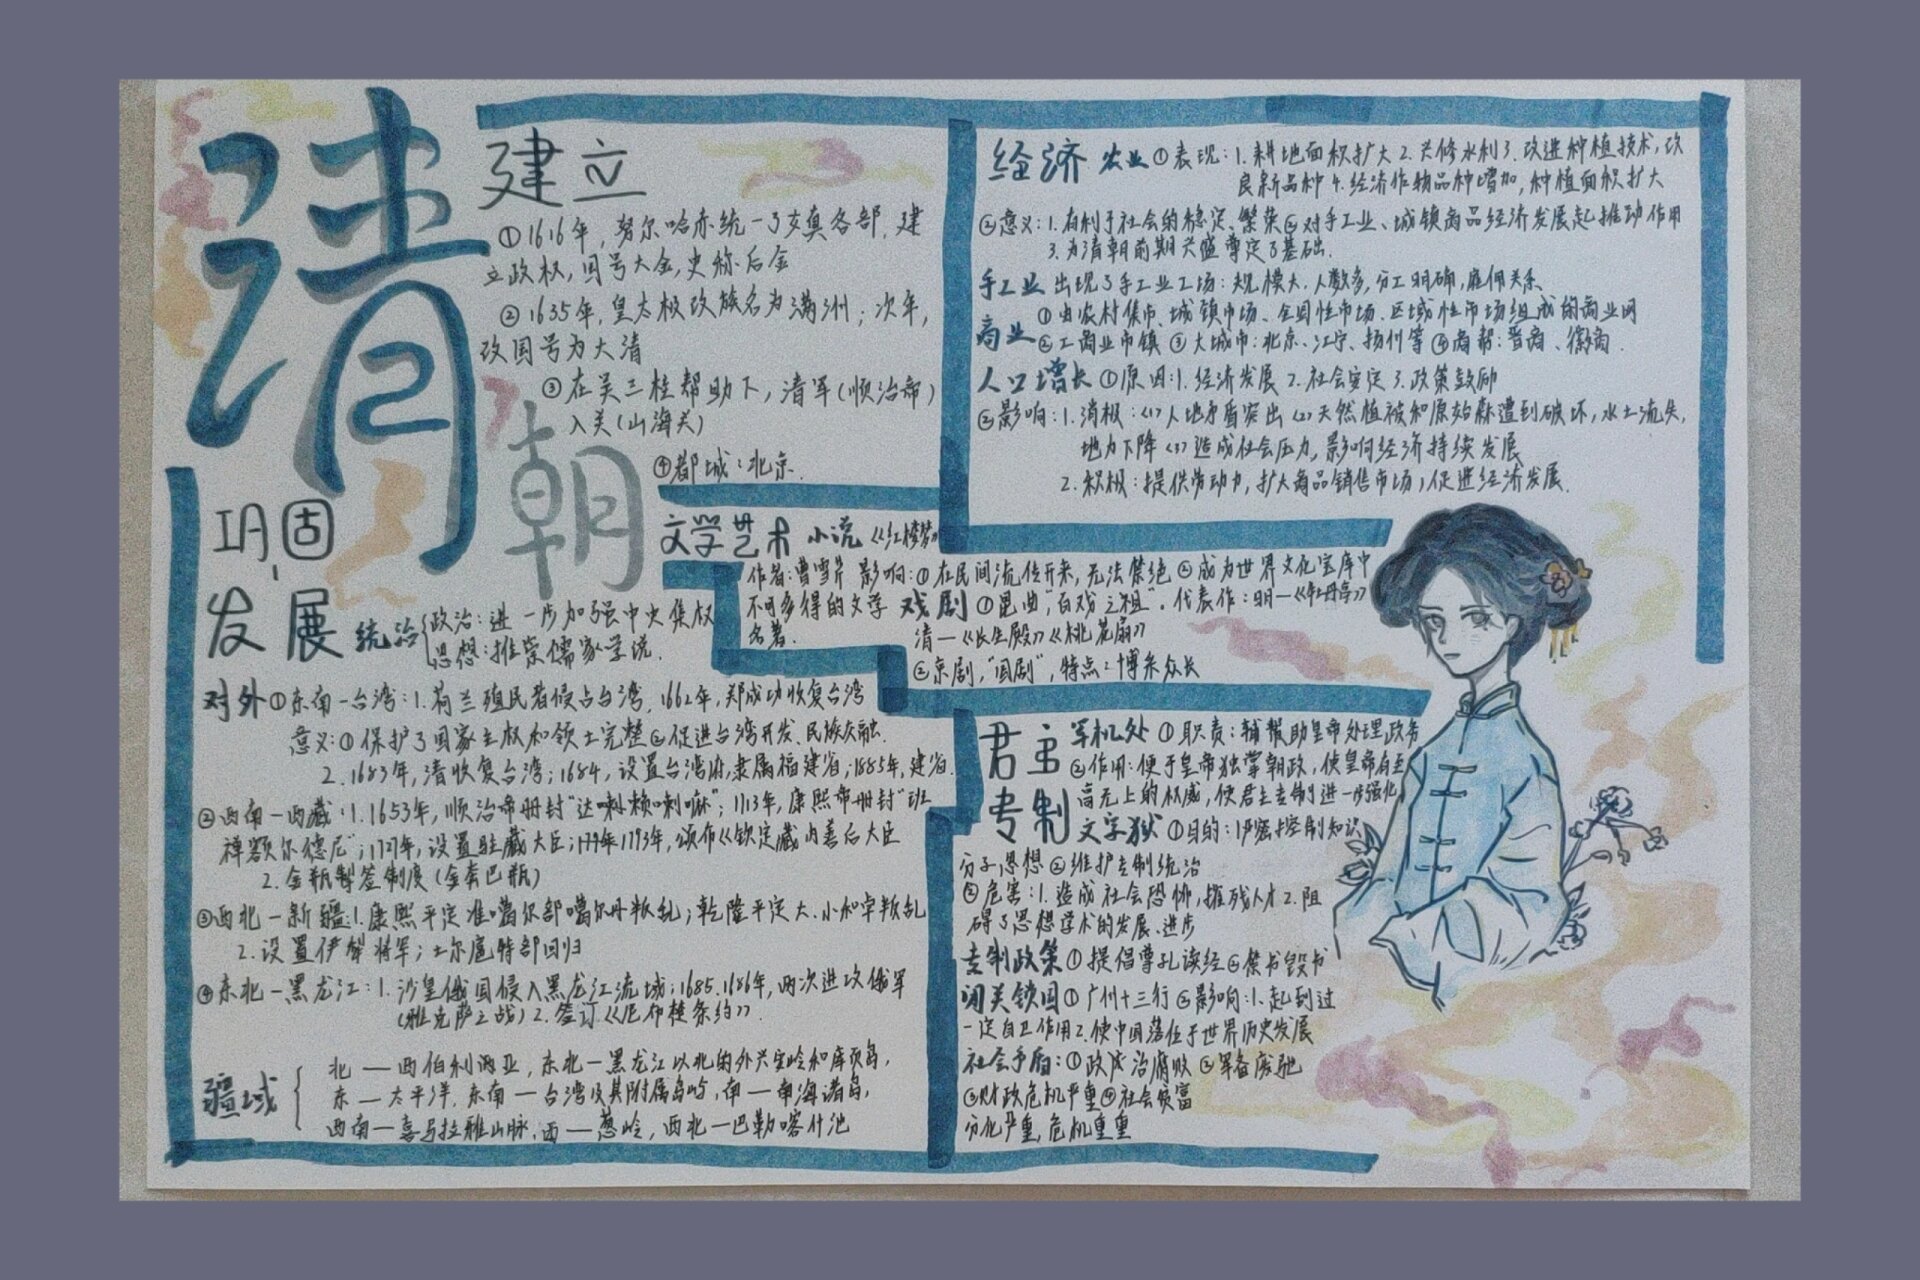 清朝
建立
①1616年，努尔哈赤统一了女真各部，建
立政权，国号大金，史称后金
②1635年，皇太极改族名为满洲；次年，
改国号为大清
③在吴三桂帮助下，清军(顺治帝)
入关(山海关)
④都城：北京.
巩固、
发展
统治
政治：进一步加强中央集权
思想：推崇儒家学说.
对外①东南-台湾：1.荷兰殖民者侵占台湾，1662年，郑成功收复台湾
意义：①保护了国家主权和领土完整②促进台湾开发、民族交融.
2.1683年，清收复台湾；1684，设置台湾府，隶属福建省；1885年，建省.
②西南-西藏：1.1653年，顺治帝册封“达喇赖喇嘛”；1713年，康熙帝册封“班
禅额尔德尼”；1727年，设置驻藏大臣；1793年，颁布《钦定藏内善后大臣
2.金瓶掣签制度(金奔巴瓶)
③西北-新疆：1.康熙平定准噶尔部噶尔丹叛乱；乾隆平定大、小和卓叛乱
2.设置伊犁将军；土尔扈特部回归
④东北-黑龙江：1.沙皇俄国侵入黑龙江流域；1685.1686年，两次进攻俄军
(雅克萨之战)2.签订《尼布楚条约》.
疆域
北——西伯利亚，东北-黑龙江以北的外兴安岭和库页岛，
东—太平洋，东南—台湾及其附属岛屿，南—南海诸岛，
西南—喜马拉雅山脉，西—葱岭，西北—巴勒喀什池
文学艺术 小说《红楼梦》
作者：曹雪芹 影响：①在民间流传开来，无法禁绝②成为世界文化宝库中
不可多得的文学
名著.
戏剧①昆曲，“百戏之祖”。代表作：明-《牡丹亭》
清-《长生殿》《桃花扇》
②京剧，“国剧”，特点：博采众长
经济 农业①表现：1.耕地面积扩大2.兴修水利3.改进种植技术，改
良新品种4.经济作物品种增加，种植面积扩大
②意义：1.有利于社会的稳定、繁荣②对手工业、城镇商品经济发展起推动作用
3.为清朝前期兴盛奠定了基础.
手工业 出现了手工业工场：规模大，人数多，分工明确，雇佣关系
商业 ①由农村集市、城镇市场、全国性市场、区域性市场组成的商业网
②工商业市镇③大城市：北京、江宁、扬州等④商帮：晋商、徽商.
人口增长①原因：1.经济发展2.社会安定3.政策鼓励
②影响：1.消极：(1)人地矛盾突出(2)天然植被和原始森遭到破坏，水土流失，
地力下降(3)造成社会压力，影响经济持续发展
2.积极：提供劳动力，扩大商品销售市场，促进经济发展.
君主
专制
军机处①职责：辅帮助皇帝处理政务
②作用：便于皇帝独掌朝政，使皇帝有至
高无上的权威，使君主专制进一步强化
文字狱①目的：1严密控制知识
分子思想②维护专制统治
②危害：1.造成社会恐怖，摧残人才2.阻
碍了思想学术的发展、进步
专制政策①提倡尊孔读经②焚书毁书
闭关锁国①广州十三行②影响：1.起到过
一定自卫作用2.使中国落伍于世界历史发展
社会矛盾：①政治腐败②军备废弛
③财政危机严重④社会贫富
分化严重，危机重重